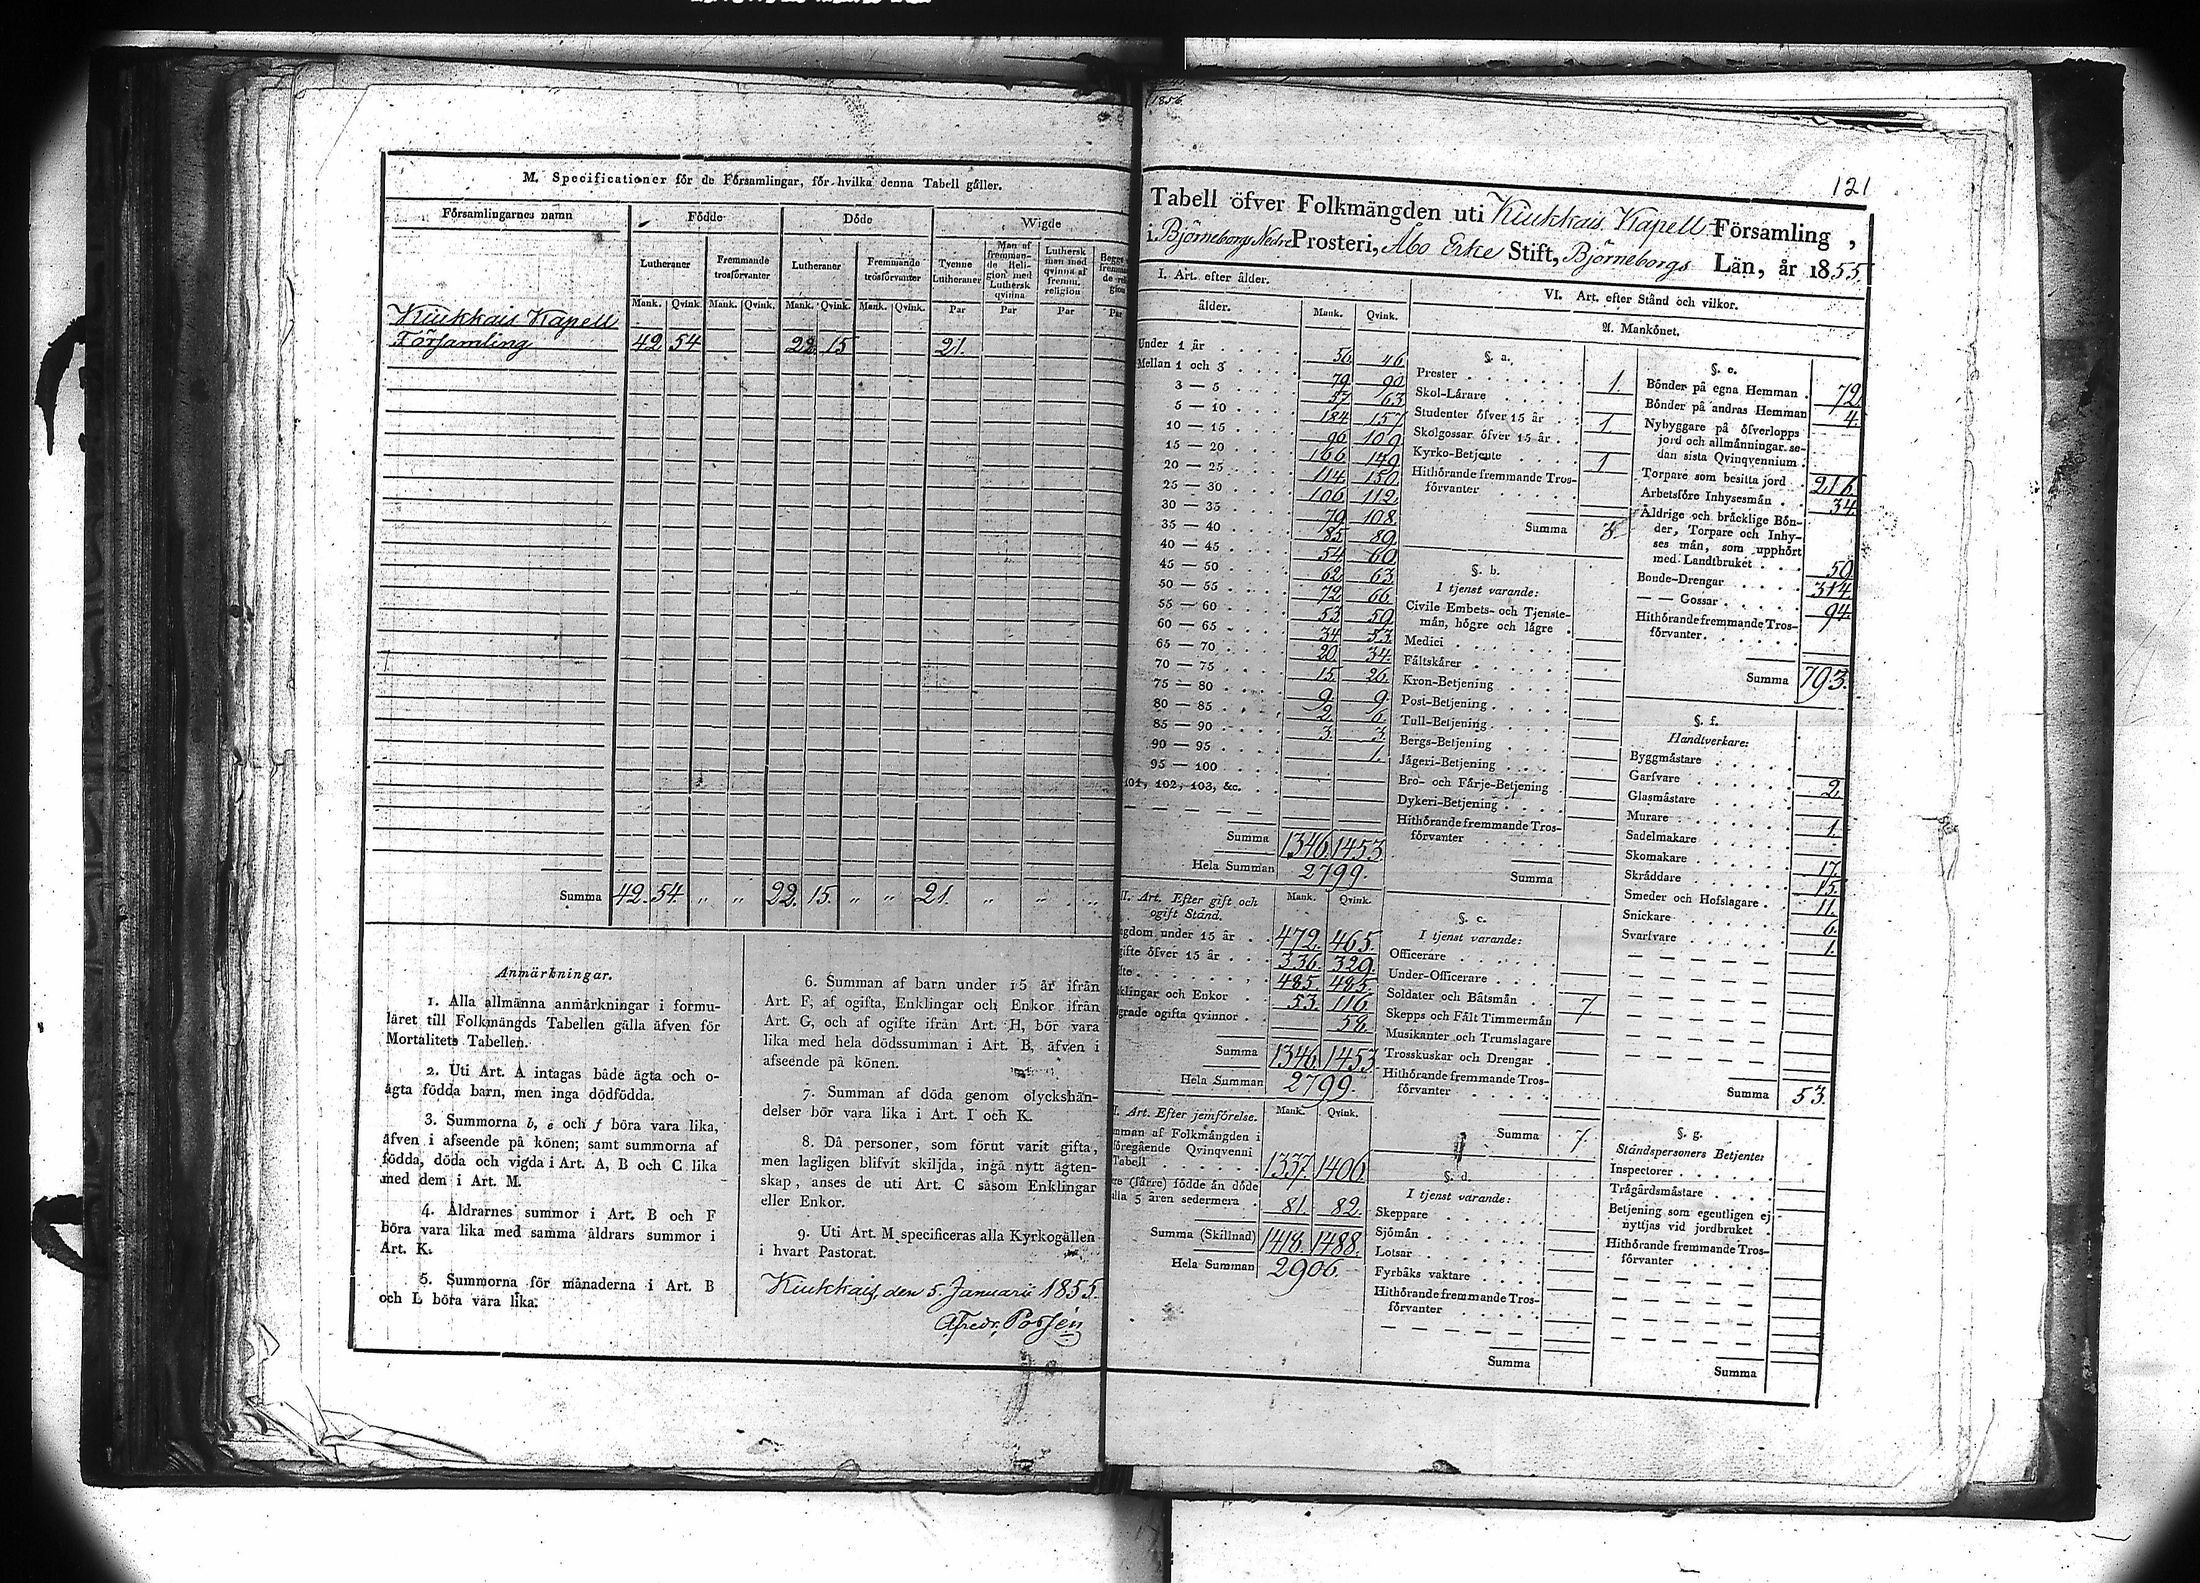 M. Specificationer för de Församlingar, för hvilka denna Tabell gäller.
Församlingarnes namn
Födde
Döde
Wigde
Lutheraner
Fremmande trosförvanter
Lutheraner
Fremmande trosförvanter
Tvenne Lutheraner
Man af fremmande Religion med Luthersk qvinna
Luthersk man med qvinna af fremm. religion
Mank. Qvink. Mank. Qvink. Mank. Qvink. Mank. Qvink. Par Par Par
Kiukkais Kapell
Församling 42 54 22 15 21.
Summa 42. 54. „ „ 22. 15. „ „ 21. „ „ „
Anmärkningar.
1. Alla allmänna anmärkningar i formu-
läret till Folkmängds Tabellen gälla äfven för
Mortalitets Tabellen.
2. Uti Art. A intagas både ägta och o-
ägta födda barn, men inga dödfödda.
3. Summorna b, e och f böra vara lika,
äfven i afseende på könen; samt summorna af
födda, döda och vigda i Art. A, B och C lika
med dem i Art. M.
4. Åldrarnes summor i Art. B och F
böra vara lika med samma åldrars summor i
Art. K.
5. Summorna för månaderna i Art. B
och L böra vara lika.
6. Summan af barn under 15 år ifrån
Art. F, af ogifta, Enklingar och Enkor ifrån
Art. G, och af ogifte ifrån Art. H, bör vara
lika med hela dödssumman i Art. B, äfven i
afseende på könen.
7. Summan af döda genom olyckshän-
delser bör vara lika i Art. I och K.
8. Då personer, som förut varit gifta,
men lagligen blifvit skiljda, ingå nytt ägten-
skap, anses de uti Art. C såsom Enklingar
eller Enkor.
9. Uti Art. M specificeras alla Kyrkogällen
i hvart Pastorat.
Kiukkais, den 5. Januarii 1855.
1856.
121
Tabell öfver Folkmängden uti Kiukkais Kapell Församling,
i Björneborgs Nedre Prosteri, Åbo Erke Stift, Björneborgs Län, år 1855.
I. Art. efter ålder.
ålder. Mank. Qvink.
Under 1 år 56 46
Mellan 1 och 3 79 90
3 — 5 57 63
5 — 10 184 157
10 — 15 96 109
15 — 20 166 149
20 — 25 114 150
25 — 30 106 112
30 — 35 79 108
35 — 40 85 89
40 — 45 54 60
45 — 50 62 63
50 — 55 72 66
55 — 60 53 59
60 — 65 34 53
65 — 70 20 34
70 — 75 15 26
75 — 80 9 9
80 — 85 2 6
85 — 90 3 3
90 — 95 1
95 — 100
101, 102, 103, &c.
Summa 1346 1453
Hela Summan 2799
II. Art. Efter gift och
ogift Stånd. Mank. Qvink.
gdom under 15 år 472. 465.
gifte öfver 15 år 336. 329.
fte 485. 485.
klingar och Enkor 53. 116.
grade ogifta qvinnor 58.
Summa 1346 1453
Hela Summan 2799.
I. Art. Efter jemförelse. Mank. Qvink.
mman af Folkmängden i
föregående Qvinqvenni
Tabell 1337. 1406.
re (färre) födde än döde
lla 5 åren sedermera 81. 82.
Summa (Skillnad) 1418. 1488.
Hela Summan 2906.
VI. Art. efter Stånd och vilkor.
A. Mankönet.
§. a.
Prester 1.
Skol-Lärare
Studenter öfver 15 år 1.
Skolgossar öfver 15 år
Kyrko-Betjente 1
Hithörande fremmande Tros-
förvanter
Summa 3.
§. b.
I tjenst varande:
Civile Embets- och Tjenste-
män, högre och lägre
Medici
Fältskärer
Kron-Betjening
Post-Betjening
Tull-Betjening
Bergs-Betjening
Jägeri-Betjening
Bro- och Färje-Betjening
Dykeri-Betjening
Hithörande fremmande Tros-
förvanter
Summa
§. c.
I tjenst varande:
Officerare
Under-Officerare
Soldater och Båtsmän 7.
Skepps och Fält Timmermän
Musikanter och Trumslagare
Trosskuskar och Drengar
Hithörande fremmande Tros-
förvanter
Summa 7.
§. d.
I tjenst varande:
Skeppare
Sjömän
Lotsar
Fyrbåks vaktare
Hithörande fremmande Tros-
förvanter
Summa
§. e.
Bönder på egna Hemman 72
Bönder på andras Hemman 4.
Nybyggare på öfverlopps
jord och allmänningar se-
dan sista Qvinqvennium
Torpare som besitta jord 216.
Arbetsföre Inhysesmän 34.
Äldrige och bräcklige Bön-
der, Torpare och Inhy-
ses män, som upphört
med Landtbruket 59
Bonde-Drengar 314.
— — Gossar 94.
Hithörande fremmande Tros-
förvanter
Summa 793.
§. f.
Handtverkare:
Byggmästare
Garfvare 2.
Glasmästare
Murare 1.
Sadelmakare
Skomakare 17.
Skräddare 15.
Smeder och Hofslagare 11.
Snickare 6.
Svarfvare 1.
Summa 53.
§. g.
Ståndspersoners Betjente:
Inspectorer
Trägårdsmästare
Betjening som egentligen ej
nyttjas vid jordbruket
Hithörande fremmande Tros-
förvanter
Summa